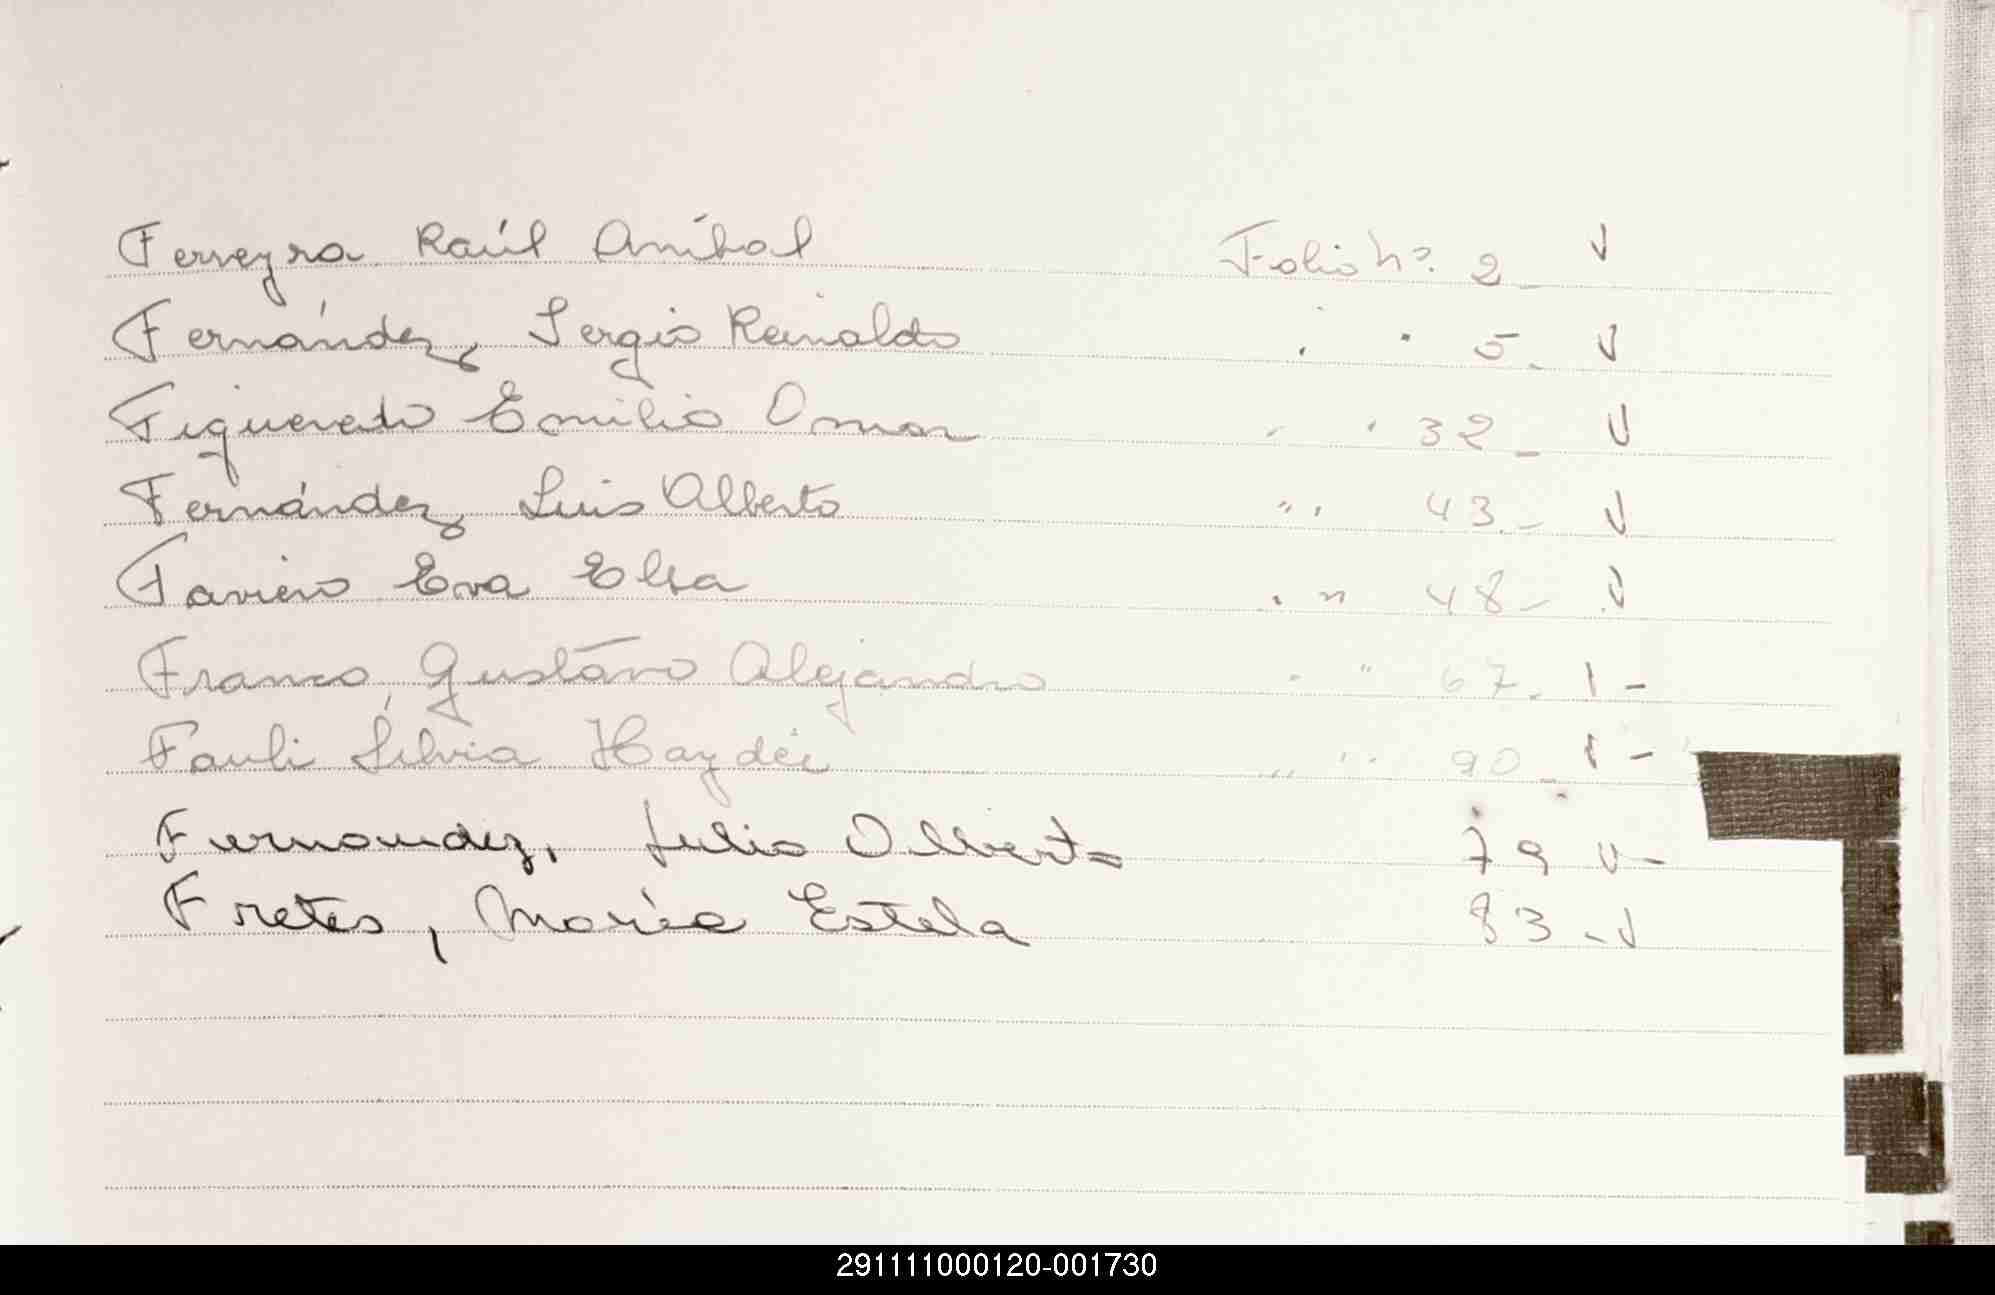 Ferreyra Raúl Aníbal Folio Nº. 2_ √
Fernández, Sergio Reinaldo " " 5_ √
Figueredo Emilio Omar " " 32_ √
Fernández, Luis Alberto " " 43._ √
Faviero Eva Elsa " " 48_ √
Franco, Gustavo Alejandro " " 67_ √ -
Fauli Silvia Haydée " " 90_ √ -
Fernandez, Julio Alberto 79 √-
Fretes, María Estela 83_√
291111000120-001730